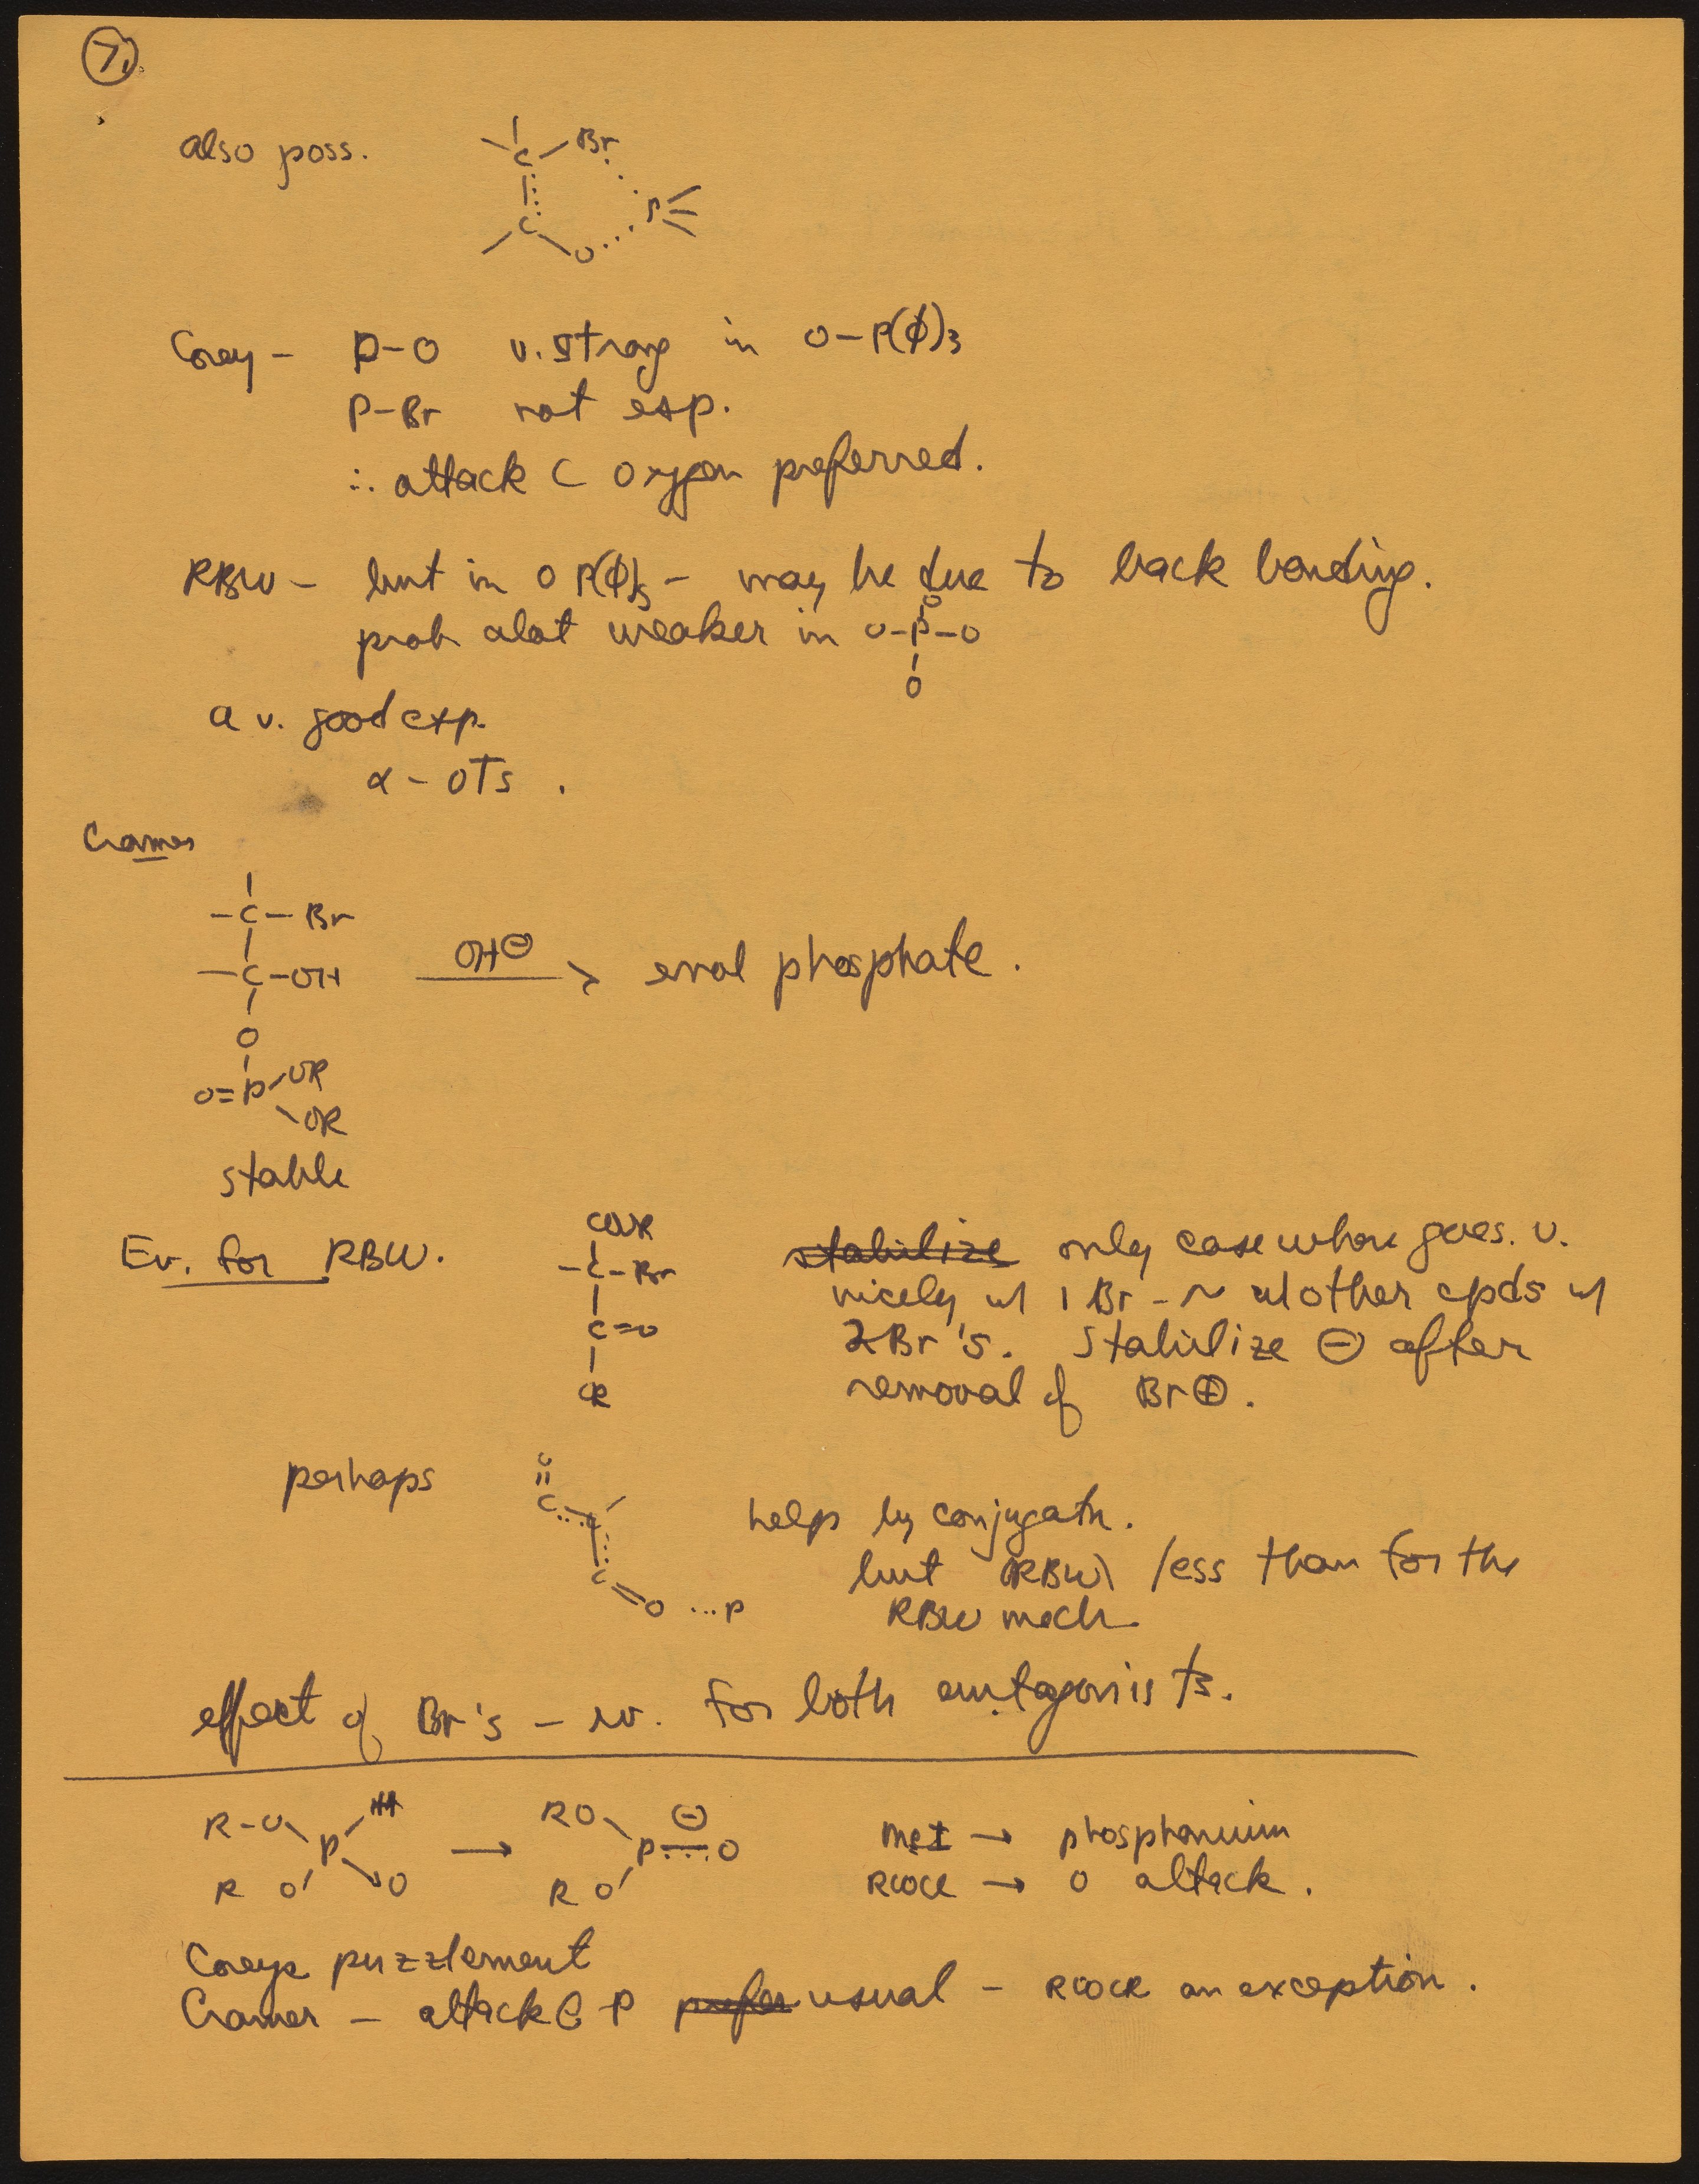 7.
also poss.
C Br
P
C O
Corey – P–O v. strong in O–P(ϕ)3
P–Br not esp.
∴ attack C oxygen preferred.
RBW – but in O P(ϕ)3 – may be due to back bonding.
prob alot weaker in O–P–O
O
O
a v. good exp.
α – OTs .
Cramer
–C–Br
–C–OH
OH⊖ → enol phosphate .
O
O=P OR
OR
stable
Ev. for RBW.
–C–Br
C=O
stabilize only case where goes. v.
nicely w/ 1 Br – ~ w/ other cpds w/
2Br's. Stabilize ⊖ after
removal of Br⊕.
perhaps
O
C
C
C
O ...P
help by conjugatn.
but (RBW) less than for the
RBW mech.
effect of Br's – for both antagonists.
R–O P H
R O O
→
RO P O ⊖
R O
MeI → phosphonium
RCOCl → O attack .
Coreys puzzlement
Cramer – attack @ P prefer usual – an exception .